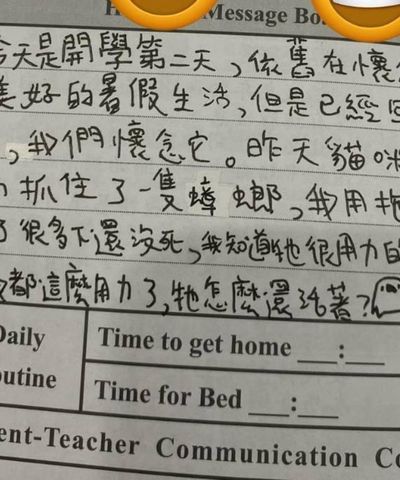 Message Bo
今天是開學第二天,依舊在懷
美好的暑假生活,但是已經回
,我們懷念它。昨天貓咪
抓住了一隻蟑螂,我用拖
了很多下還沒死,我知道牠很用力的
都這麼用力了,牠怎麼還活著?
Daily Routine
Time to get home ___:___
Time for Bed ___:___
ent-Teacher Communication Co